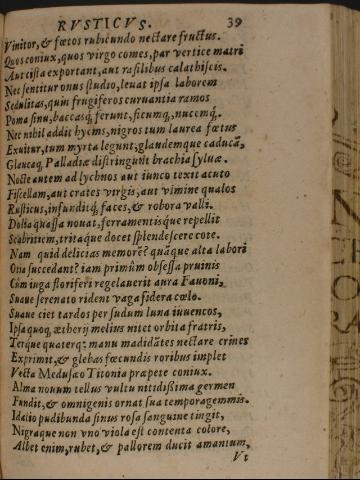 RVSTICVS. 39
Vinitor, & fœtos rubicundo nectare fructus.
Quos coniux, quos virgo comes, par vertice matri
Aut cista exportant, aut rasilibus calathiscis.
Nec sentitur onus studio, leuat ipsa laborem
Sedulitas, quin frugiferos curuantia ramos
Poma sinu, baccasq́, ferunt, ficumq́, nucemq́.
Nec nihil addit hyems, nigros tum laurea fœtus
Exuitur, tum myrta legunt, glandemque caducã,
Glaucaq, Palladiæ distringunt brachia syluæ.
Nocte autem ad lychnos aut iunco texit acuto
Fiscellam, aut crates virgis, aut vimine qualos
Rusticus, infinditq́, faces, & robora valli.
Dolia quassa nouat, ferramentisq́ue repellit
Scabritiem, tritáque docet splendescere cote.
Nam quid delicias memorẽ? quãque alta labori
Ocia succedant? iam primùm obsessa pruinis
Cùm iuga floriferi regelauerit aura Fauoni,
Suaue serenato rident vaga sidera cœlo.
Suaue ciet tardos per sudum luna iuuencos,
Ipsa quoq, ætherij melius nitet orbita fratris,
Terque quaterq: manu madidãtes nectare crines
Exprimit, & glebas fœcundis roribus implet
Vecta Medusæo Titonia præpete coniux.
Alma nouum tellus vultu nitidissima germen
Fundit, & omnigenis ornat sua temporagemmis.
Idalio pudibunda sinus rosa sanguine tingit,
Nigraque non vno viola est contenta colore,
Albet enim, rubet, & pallorem ducit amantum,
Vt